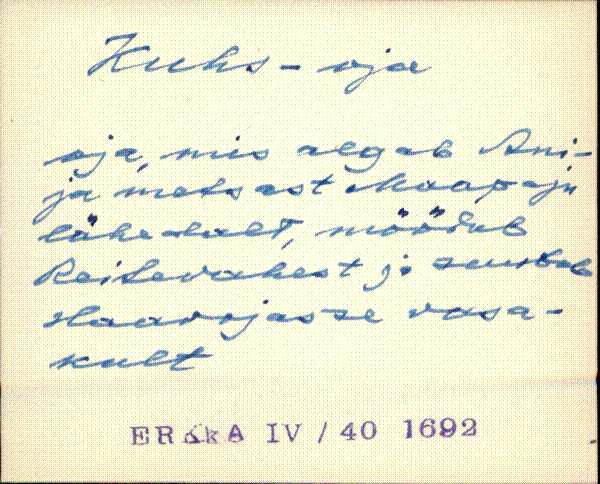 Kuhs - oja
oja, mis algab Ani-
ja metsast Maapaju
lähedalt, möödub
Reilevahest ja suubub
Haavojasse vasa-
kult
ERKkA IV / 40 1692